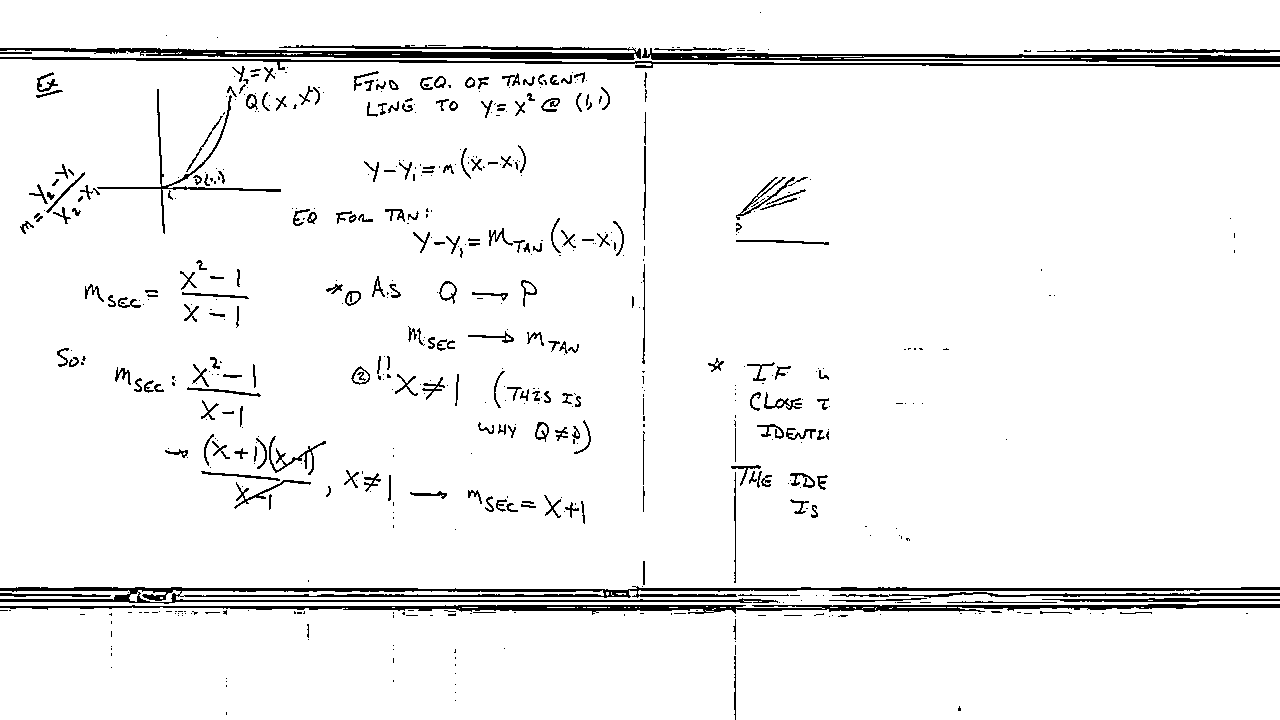 Ex
Y=X²
Q(X,X²)
P(1,1)
m=Y₂-Y₁/X₂-X₁
FIND EQ. OF TANGENT
LINE TO Y=X² @ (1,1)
Y-Y₁=m(X-X₁)
EQ FOR TAN:
Y-Y₁=m_TAN(X-X₁)
m_SEC = X²-1/X-1
* ① AS Q → P
m_SEC → m_TAN
So:
m_SEC: X²-1/X-1
② !! X≠1 (THIS IS
WHY Q≠P)
→ (X+1)(X-1)/X-1, X≠1 → m_SEC = X+1
P
☆ IF
CLOSE
THE
IS